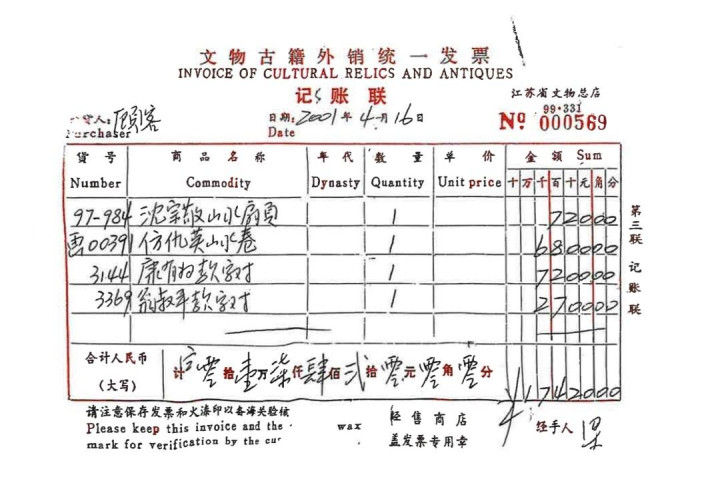 文物古籍外销统一发票
INVOICE OF CULTURAL RELICS AND ANTIQUES
记账联
江苏省文物总店
99·331
货人: 顾客
日期: 2001年4月16日
Nº 000569
Purchaser
Date
货号 商品名称 年代 数量 单价 金额 Sum
Number Commodity Dynasty Quantity Unit price 十万千百十元角分
97-984 沈宗敬山水扇页 1 72000
00391 仿仇英山水卷 1 680000
3144 康有为款字对 1 720000
3369 翁叔平款字对 1 270000
合计人民币
(大写)
计 零拾壹万柒仟肆佰贰拾零元零角零分
1742000
第三联 记账联
请注意保存发票和火漆印以备海关验核
Please keep this invoice and the wax
mark for verification by the cu
经售商店
盖发票专用章
经手人 梁